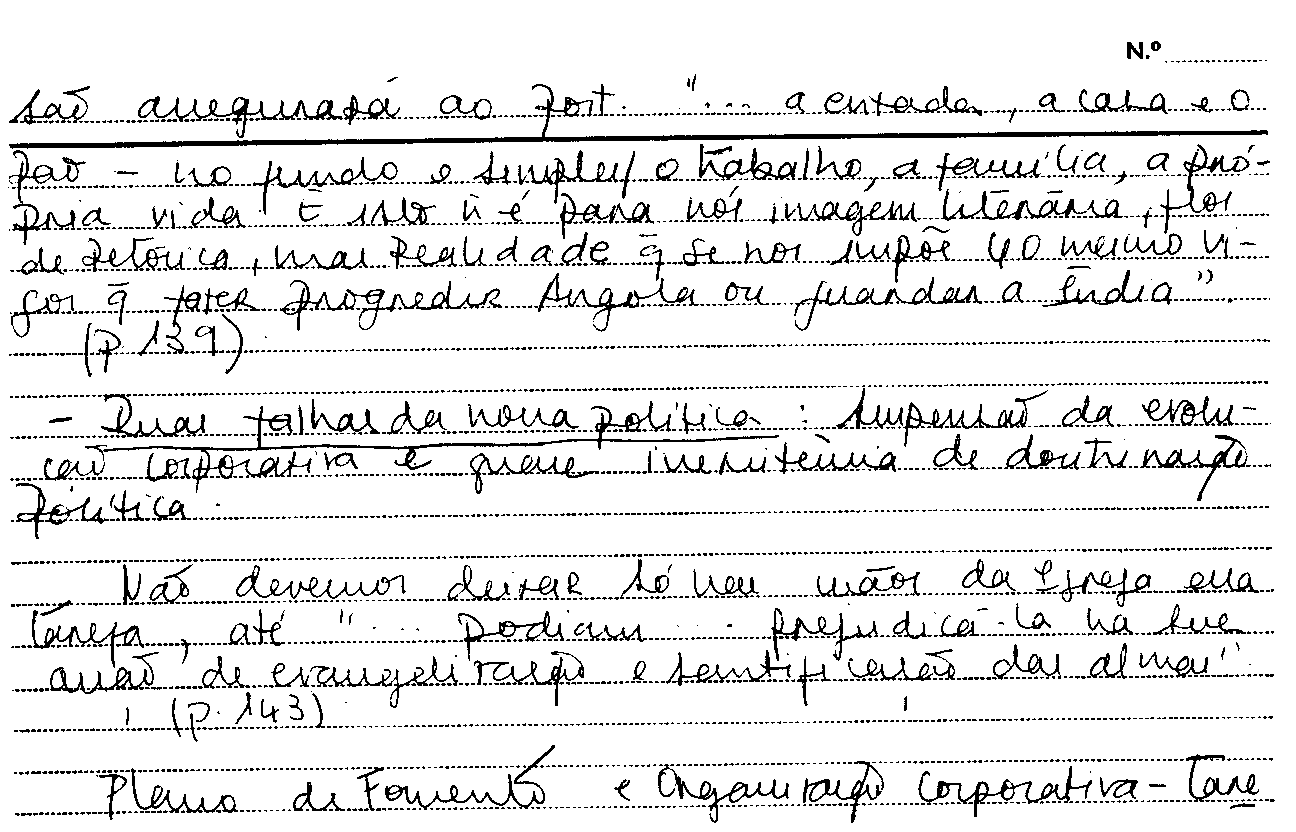 N.º
são assegurará ao Port. "... a enxada, a casa e o
pão – no fundo e simples/ o trabalho, a família, a pró-
pria vida E isto ñ é para nós imagem literária, flor
de retórica, mas realidade q̄ se nos impõe c/ o mesmo vi-
gor q̄ fazer progredir Angola ou guardar a Índia".
(p 139)
– Duas falhas da nova política : suspensão da evolu-
ção corporativa e quase inexistência de doutrinação
política.
Não devemos deixar só nas mãos da Igreja essa
tarefa, até "... podiam ... prejudicá-la na sua
acção de evangelização e santificação das almas".
(p. 143)
Plano de Fomento e Organização corporativa – Tare